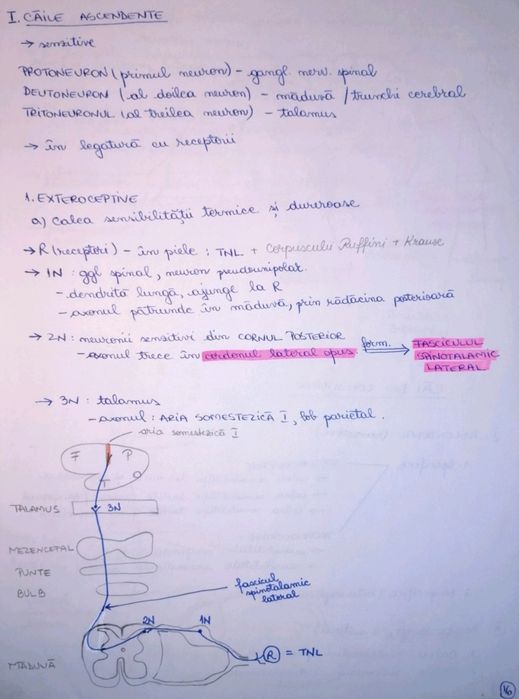 I. CĂILE ASCENDENTE
→ sensitive
PROTONEURON (primul neuron) - gangl. nerv. spinal
DEUTONEURON (al doilea neuron) - măduvă / trunchi cerebral
TRITONEURONUL (al treilea neuron) - talamus
→ în legatură cu receptorii
1. EXTEROCEPTIVE
a) Calea sensibilității termice și dureroase
→ R (receptori) - în piele : TNL + Corpusculii Ruffini + Krause
→ 1N : ggl spinal, neuron pseudounipolar.
- dendrită lungă, ajunge la R
- axonul pătrunde în măduvă, prin rădăcina posterioară
→ 2N : neuronii senzitivi din CORNUL POSTERIOR
- axonul trece în cordonul lateral opus form. → FASCICULUL
SPINOTALAMIC
LATERAL
→ 3N : talamus
- axonul : ARIA SOMESTEZICĂ I, lob parietal.
aria somestezică I
F P
T O
TALAMUS 3N
MEZENCEFAL
PUNTE
BULB
fascicul
spinotalamic
lateral
2N 1N
MĂDUVĂ R = TNL
16